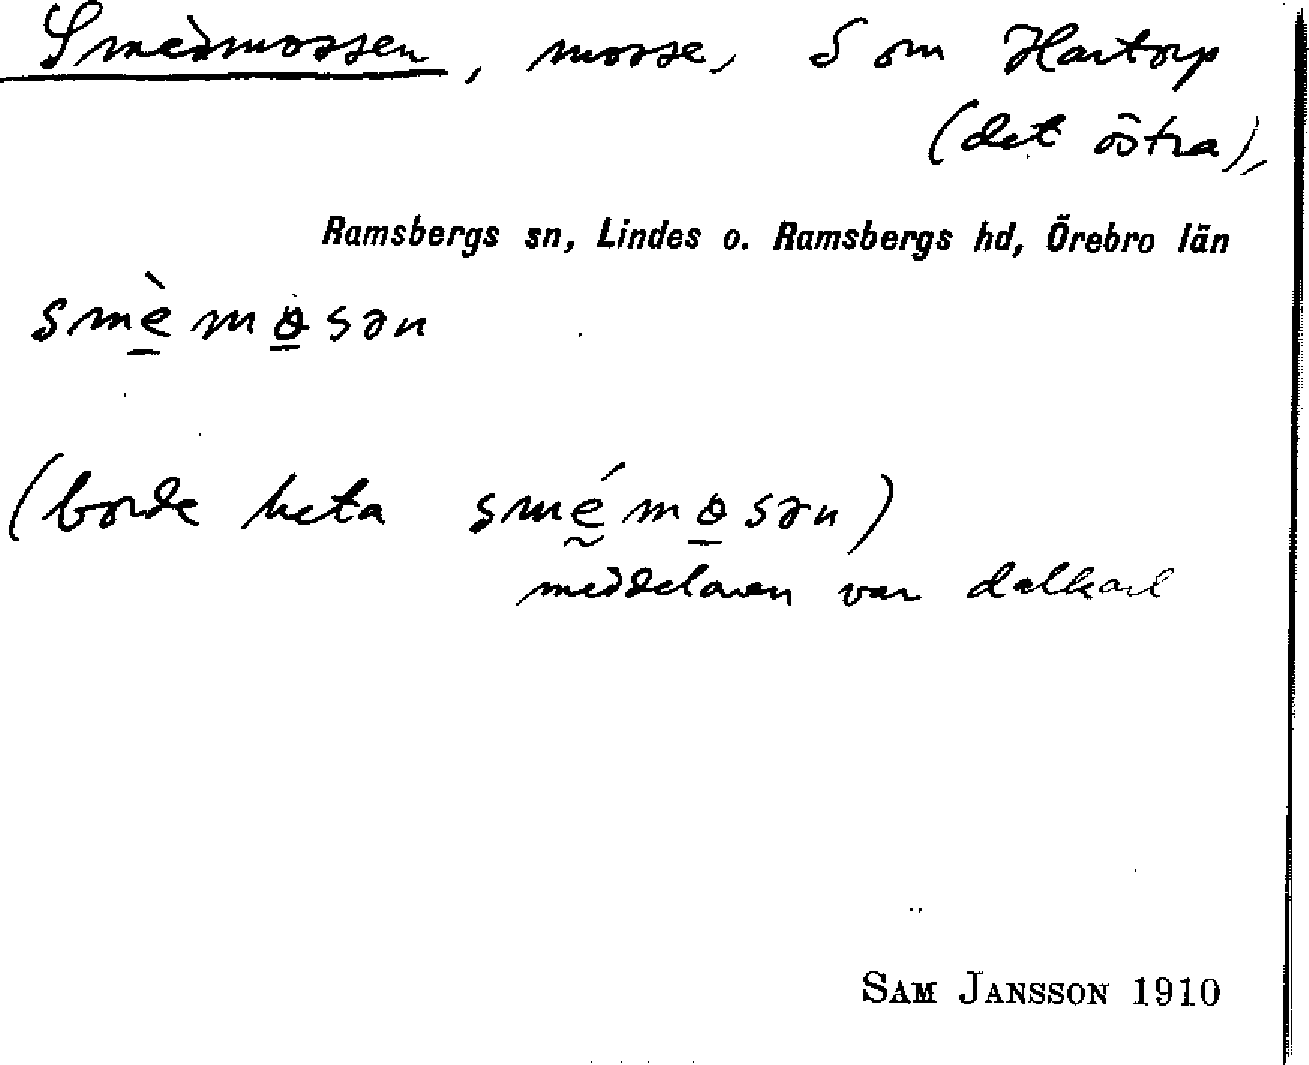 Smedmossen, mosse, S om Hartorp
(det östra),
Ramsbergs sn, Lindes o. Ramsbergs hd, Örebro län
smè̠mɵ̠sən
(borde heta smḛ́mɵ̠sən)
meddelaren var dalkarl
SAM JANSSON 1910